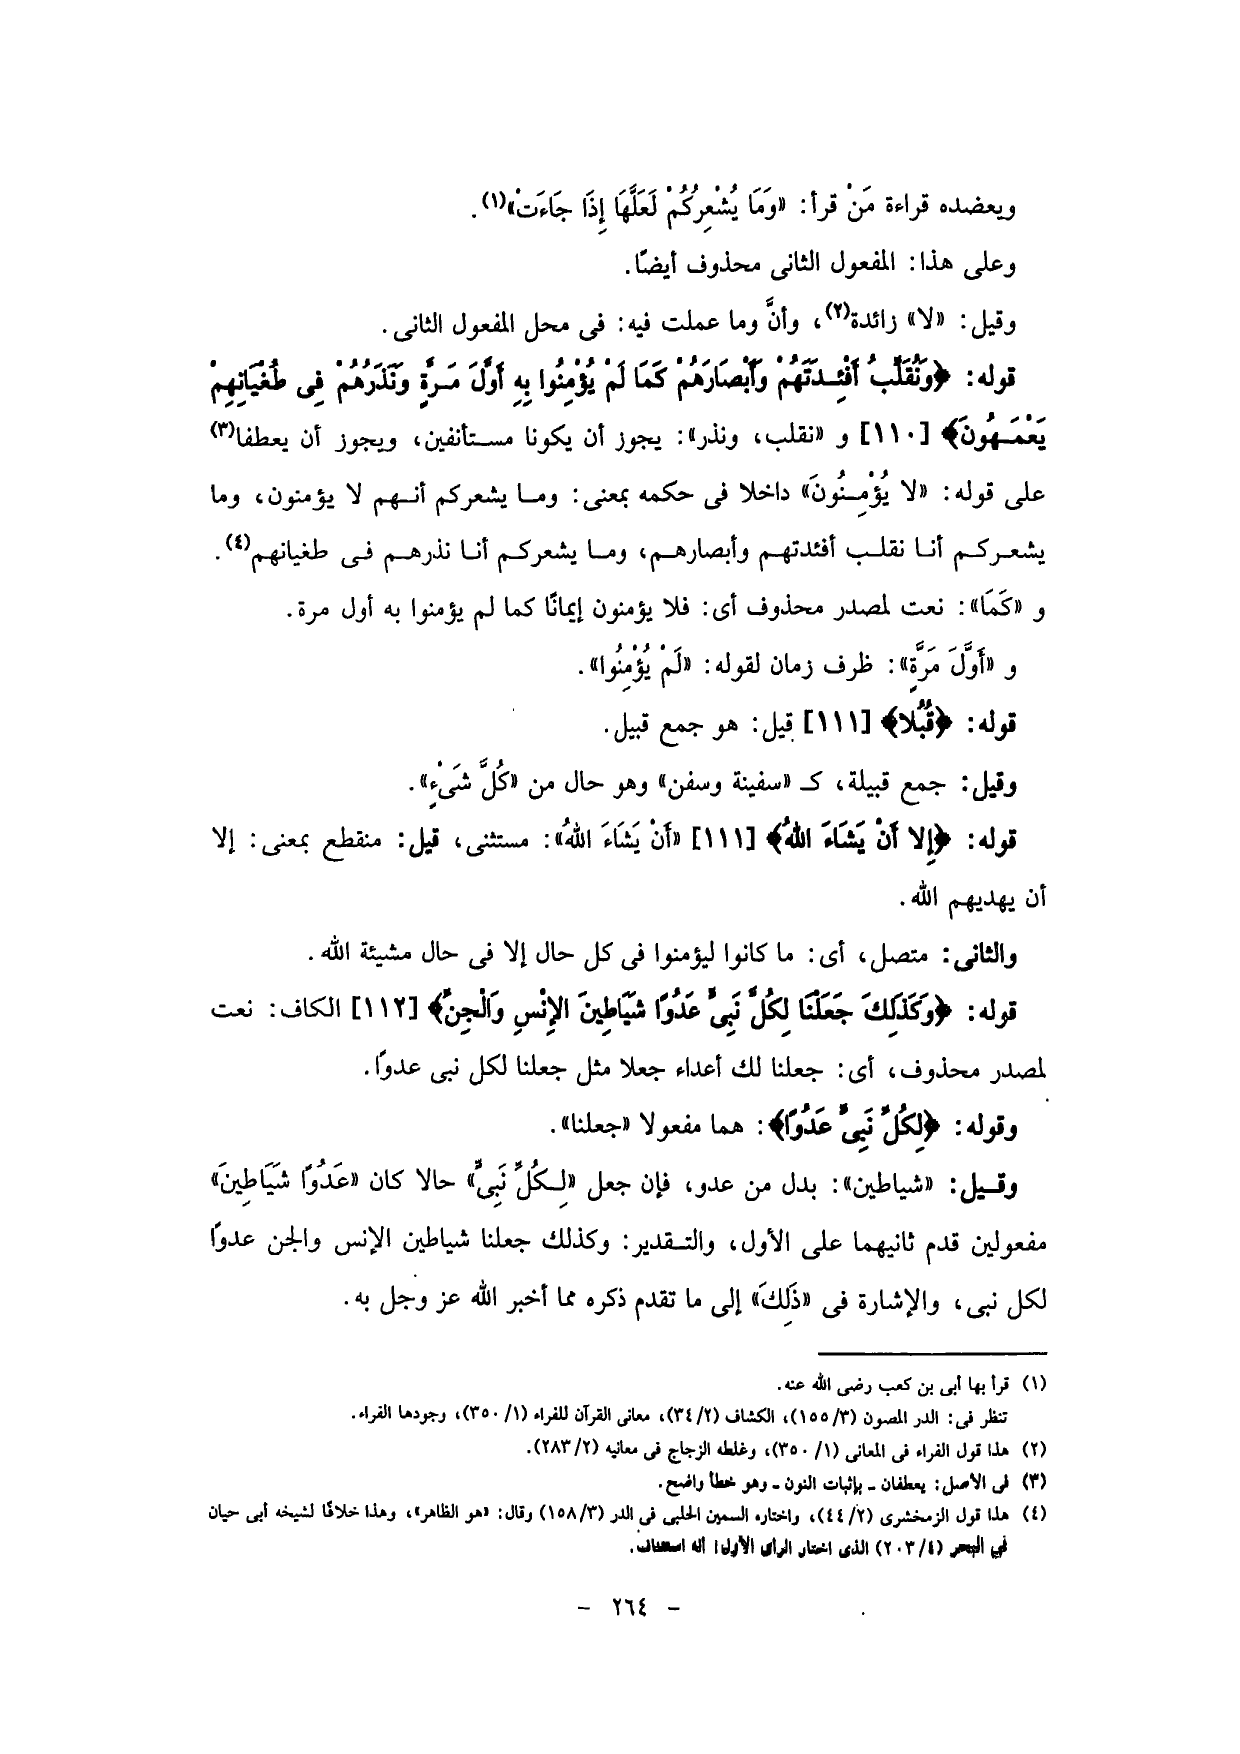 ويعضده قراءة مَنْ قرأ: «وَمَا يُشْعِرُكُمْ لَعَلَّهَا إِذَا جَاءَتْ»(١).
وعلى هذا: المفعول الثانى محذوف أيضًا.
وقيل: «لا» زائدة(٢)، وأنَّ وما عملت فيه: فى محل المفعول الثانى.
قوله: ﴿وَنُقَلِّبُ أَفْئِدَتَهُمْ وَأَبْصَارَهُمْ كَمَا لَمْ يُؤْمِنُوا بِهِ أَوَّلَ مَرَّةٍ وَنَذَرُهُمْ فِى طُغْيَانِهِمْ
يَعْمَهُونَ﴾ [١١٠] و «نقلب، ونذر»: يجوز أن يكونا مستأنفين، ويجوز أن يعطفا(٣)
على قوله: «لا يُؤْمِنُونَ» داخلا فى حكمه بمعنى: وما يشعركم أنهم لا يؤمنون، وما
يشعركم أنا نقلب أفئدتهم وأبصارهم، وما يشعركم أنا نذرهم فى طغيانهم(٤).
و «كَمَا»: نعت لمصدر محذوف أى: فلا يؤمنون إيمانًا كما لم يؤمنوا به أول مرة.
و «أَوَّلَ مَرَّةٍ»: ظرف زمان لقوله: «لَمْ يُؤْمِنُوا».
قوله: ﴿قُبُلا﴾ [١١١] قيل: هو جمع قبيل.
وقيل: جمع قبيلة، كـ «سفينة وسفن» وهو حال من «كُلَّ شَىْءٍ».
قوله: ﴿إِلا أَنْ يَشَاءَ اللهُ﴾ [١١١] «أَنْ يَشَاءَ اللهُ»: مستثنى، قيل: منقطع بمعنى: إلا
أن يهديهم الله.
والثانى: متصل، أى: ما كانوا ليؤمنوا فى كل حال إلا فى حال مشيئة الله.
قوله: ﴿وَكَذَلِكَ جَعَلْنَا لِكُلِّ نَبِىٍّ عَدُوًّا شَيَاطِينَ الإِنْسِ وَالْجِنِّ﴾ [١١٢] الكاف: نعت
لمصدر محذوف، أى: جعلنا لك أعداء جعلا مثل جعلنا لكل نبى عدوًا.
وقوله: ﴿لِكُلِّ نَبِىٍّ عَدُوًّا﴾: هما مفعولا «جعلنا».
وقيل: «شياطين»: بدل من عدو، فإن جعل «لِكُلِّ نَبِىٍّ» حالا كان «عَدُوًّا شَيَاطِينَ»
مفعولين قدم ثانيهما على الأول، والتقدير: وكذلك جعلنا شياطين الإنس والجن عدوًا
لكل نبى، والإشارة فى «ذَلِكَ» إلى ما تقدم ذكره مما أخبر الله عز وجل به.
(١) قرأ بها أبى بن كعب رضى الله عنه.
تنظر فى: الدر المصون (٣/ ١٥٥)، الكشاف (٢/ ٣٤)، معانى القرآن للفراء (١/ ٣٥٠)، وجودها الفراء.
(٢) هذا قول الفراء فى المعانى (١/ ٣٥٠)، وغلطه الزجاج فى معانيه (٢/ ٢٨٣).
(٣) فى الأصل: يعطفان ـ بإثبات النون ـ وهو خطأ واضح.
(٤) هذا قول الزمخشرى (٢/ ٤٤)، واختاره السمين الحلبى فى الدر (٣/ ١٥٨) وقال: «هو الظاهر»، وهذا خلافًا لشيخه أبى حيان
فى البحر (٤/ ٢٠٣) الذى اختار الرأى الأول أنه استئناف.
- ٢٦٤ -